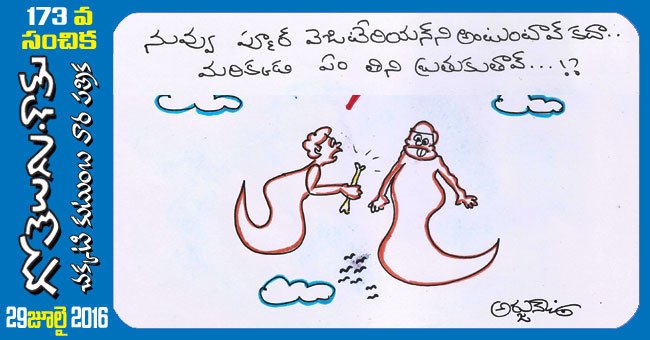 173 వ
సంచిక
గోతెలుగు.కామ్
చక్కటి కుటుంబ వార పత్రిక
29జూలై 2016
నువ్వు ప్యూర్ వెజిటేరియన్‌ని అంటుంటావ్ కదా..
మరిక్కడ ఏం తిని బ్రతుకుతావ్...!?